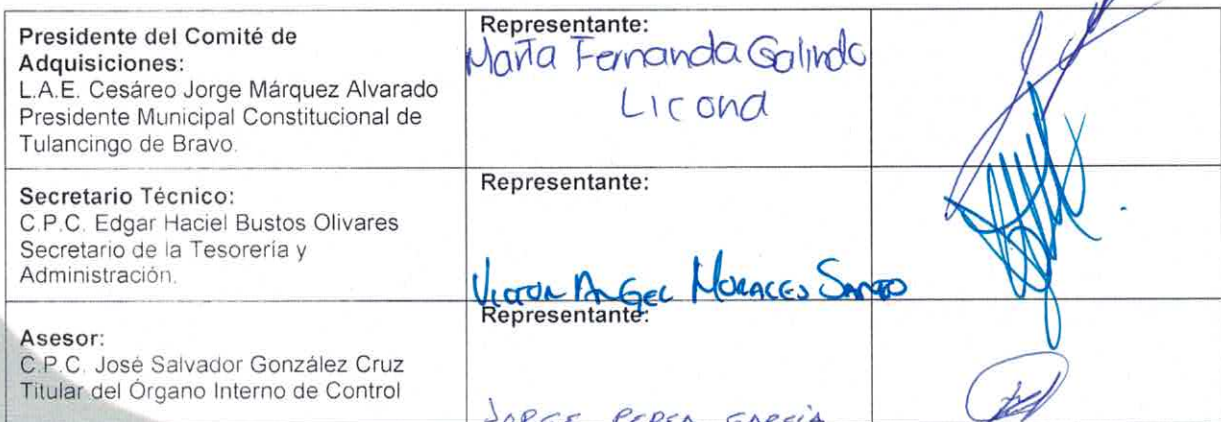 Presidente del Comité de
Adquisiciones:
L.A.E. Cesáreo Jorge Márquez Alvarado
Presidente Municipal Constitucional de
Tulancingo de Bravo.
Representante:
María Fernanda Galindo
Licona
Secretario Técnico:
C.P.C. Edgar Haciel Bustos Olivares
Secretario de la Tesorería y
Administración.
Representante:
VICTOR ANGEL MORALES SANTOS
Asesor:
C.P.C. José Salvador González Cruz
Titular del Órgano Interno de Control
Representante:
JORGE PEREA GARCÍA